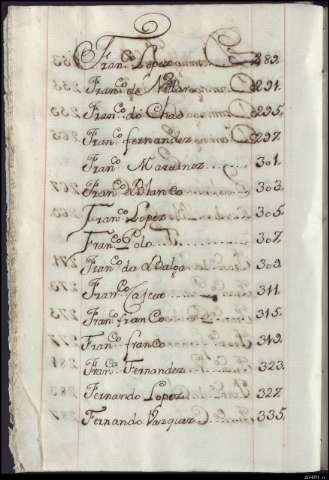 Fran.co Lopez 289.
Fran.co de 291.
Fran.co do Chao 295.
Fran.co fernandez 297.
Fran.co Martinez 301.
Fran.co Blanco 303.
Fran.co Lopez 305.
Fran.co Polo 307.
Fran.co da 309.
Fran.co 311.
Fran.co franco 315.
Fran.co franco 319.
Fran.co Fernandez 323.
Fernando Lopez 327.
Fernando Vazquez 335.
AHPL